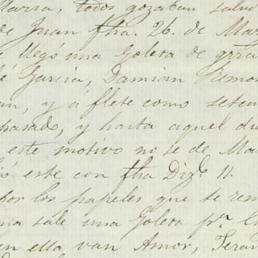 todos gozaban salud
de Juan fha. 26. de Mar
llegó una Goleta de
Garcia, Damian
y á flete como seten
pasado, y hasta aquel di
este motivo no se de Ma
ó este con fha Diz.e 11.
por los papeles que se rem
na sale una Goleta p.a C
en ella van Amor, Teran